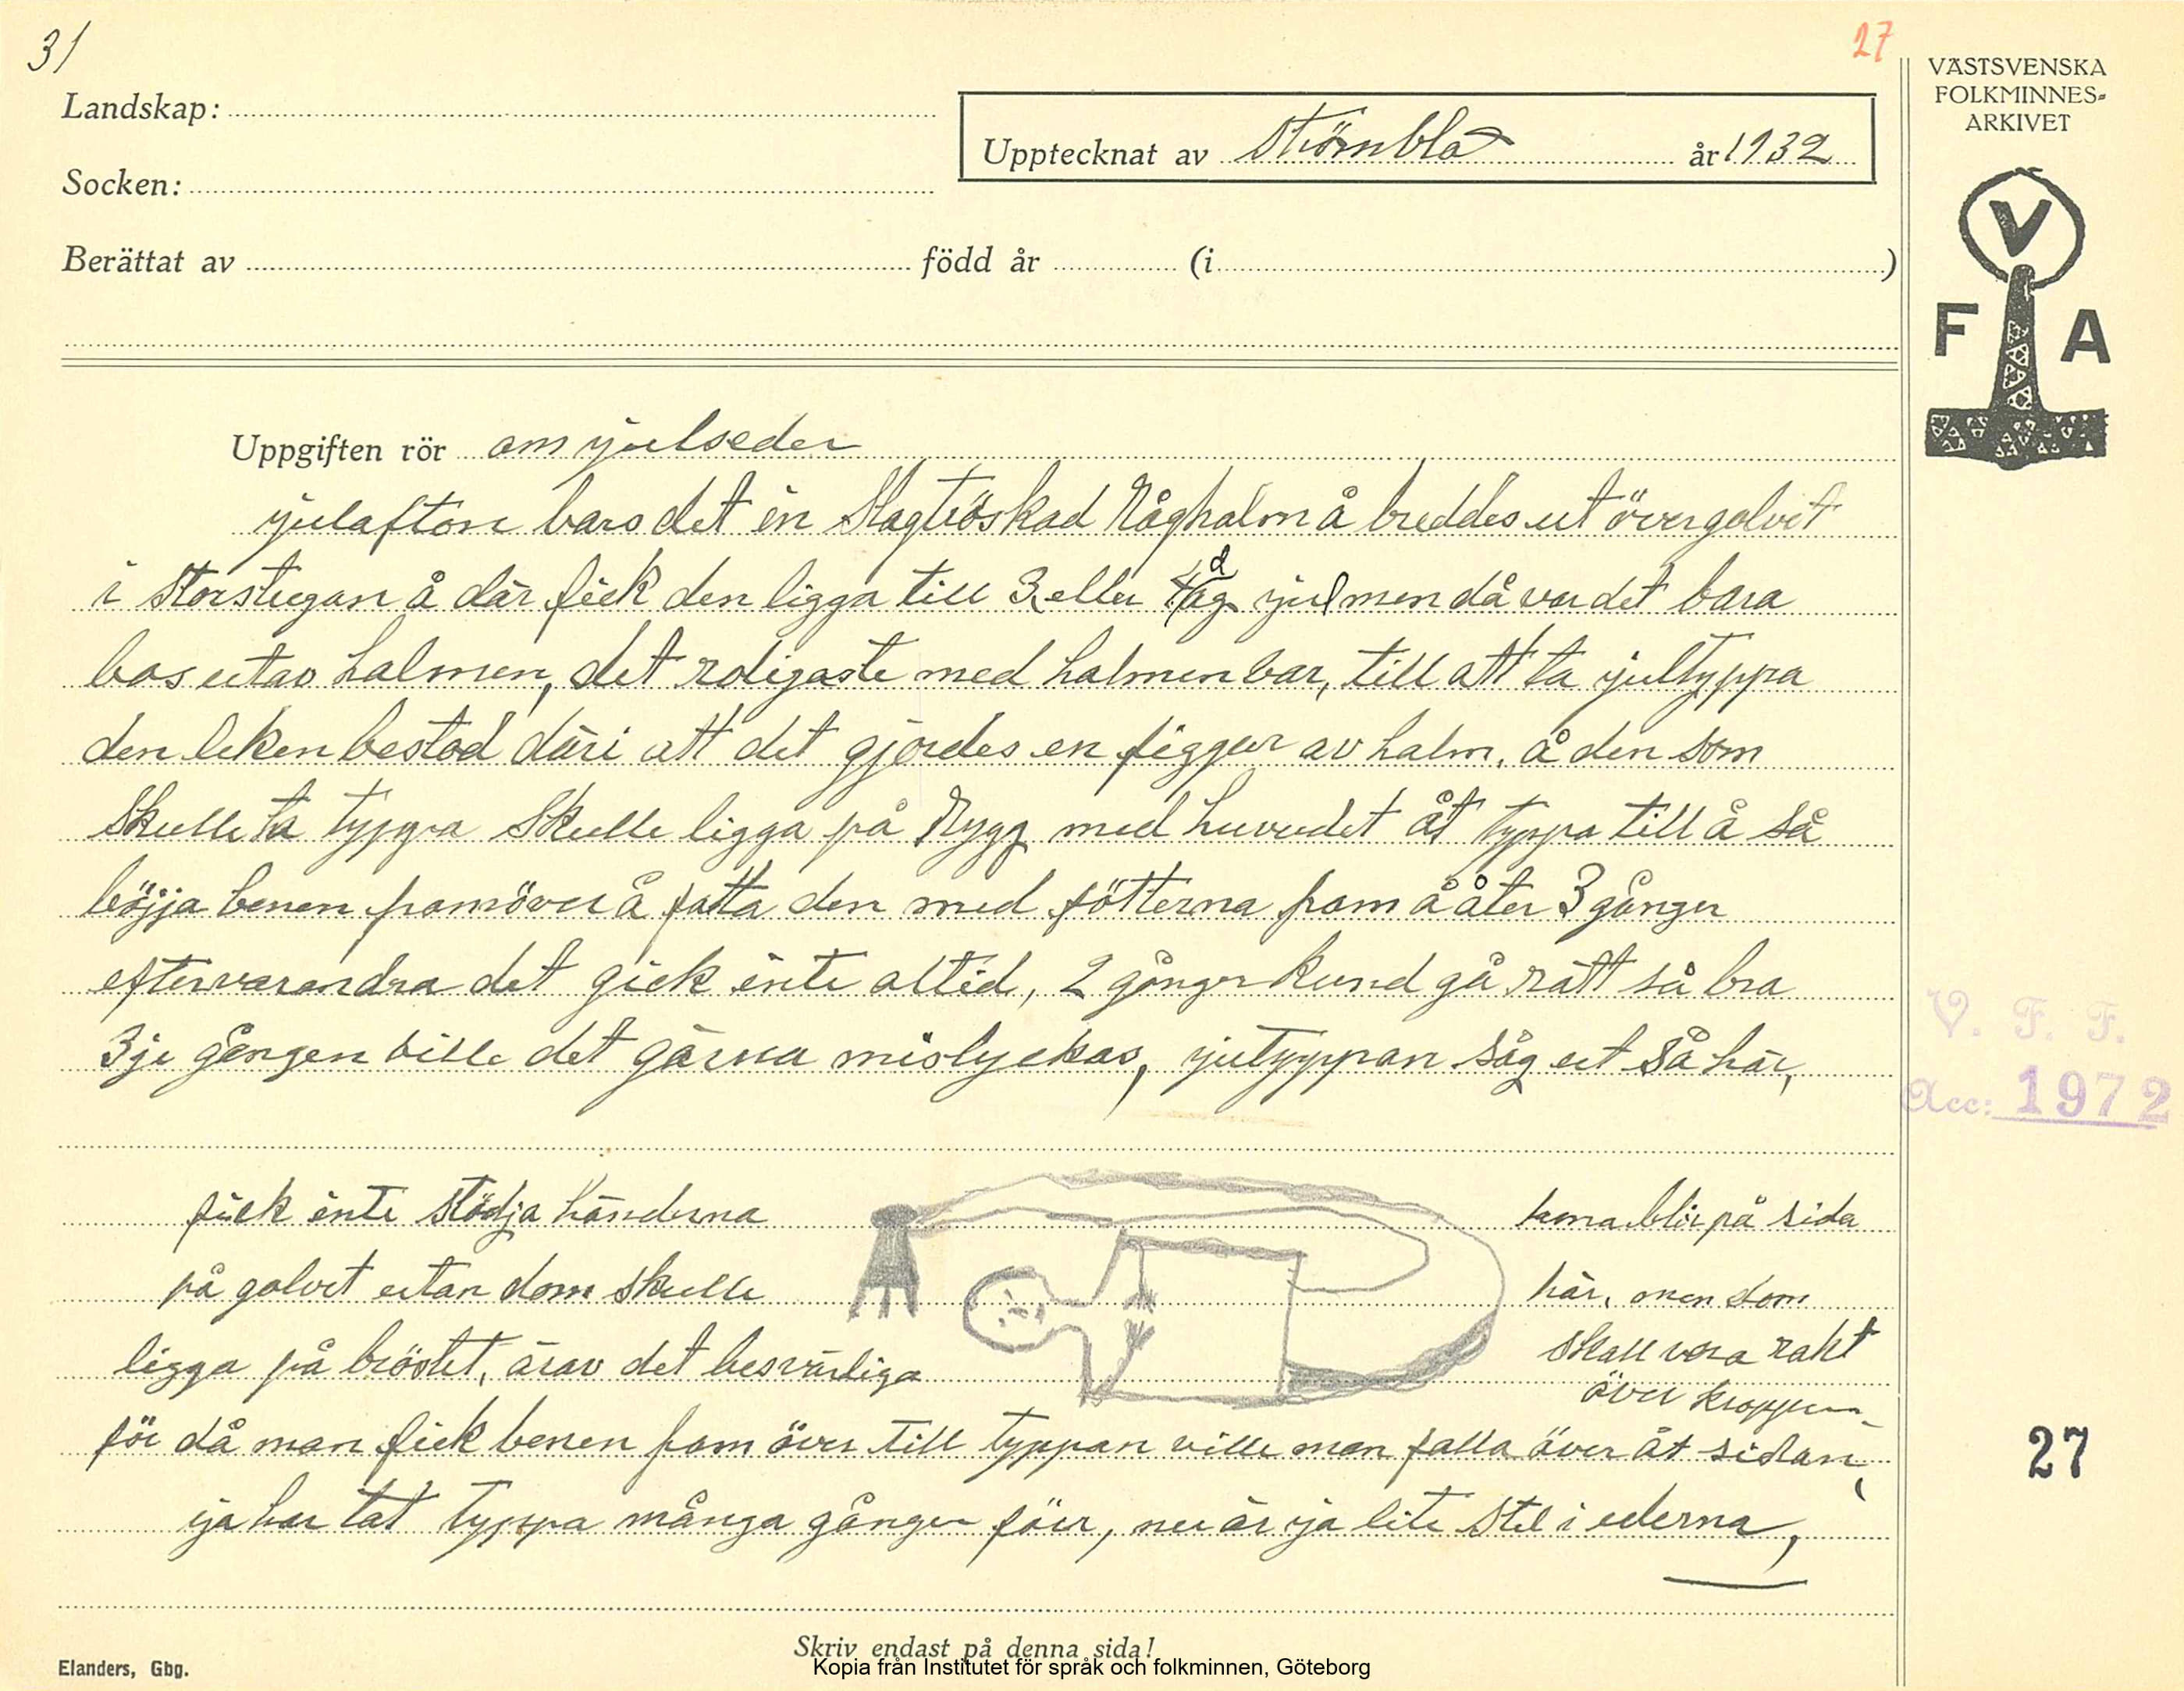 31
27
Landskap:
Upptecknat av Strömblad år 1932
Socken:
Berättat av född år (i )
VÄSTSVENSKA
FOLKMINNES=
ARKIVET
V
F A
Uppgiften rör om julseder
julafton bars det in Slagtröskad Råghalm å breddes ut över golvet
i storstugan å där fick den ligga till 3 eller 4 dag jul men då var det bara
bos utav halmen, det roligaste med halmen var, till att ta jultyppa
den leken bestod däri att det gjordes en figgur av halm. å den som
Skulle ta typpa Skulle ligga på Rygg med huvudet åt typpa till å så
böjja benen framöver å fatta den med fötterna fram å åter 3 gånger
eftervarandra det gick inte altid, 2 gånger kund gå rätt så bra
3je gången ville det gärna mislyckas, jultyppan såg ut så här,
fick inte stödja händerna
på golvet utan dom skulle
ligga på bröstet, ärav det besvärliga
bena blir på sida
här. men dom
skall vara rakt
över kroppen
för då man fick benen fram över till typpan ville man falla över åt sidan,
ja har tat typpa många gånger förr, nu är ja lite stel i ederna,
V. F. F.
Acc: 1972
27
Skriv endast på denna sida!
Elanders, Gbg.
Kopia från Institutet för språk och folkminnen, Göteborg